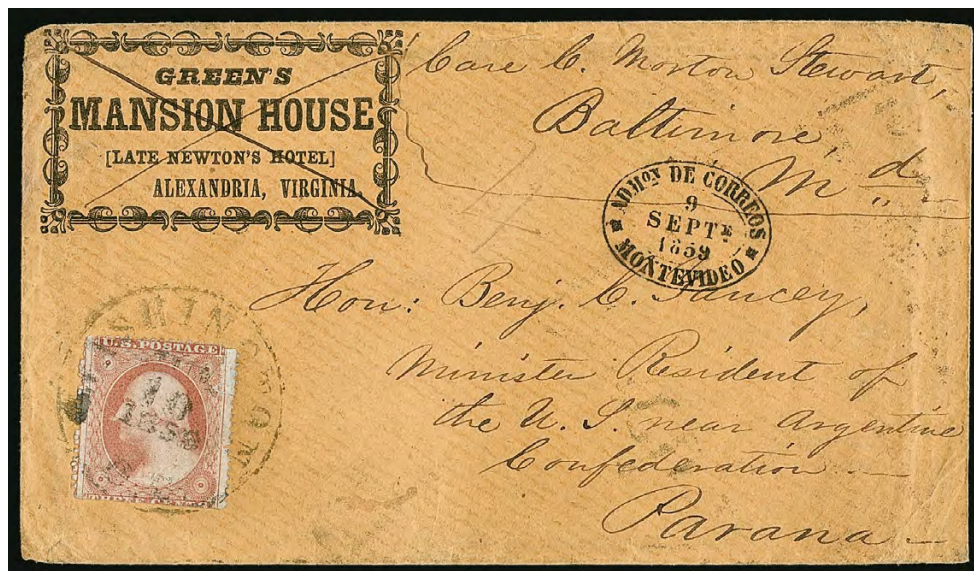 GREEN'S
MANSION HOUSE
[LATE NEWTON'S HOTEL]
ALEXANDRIA, VIRGINIA.
Care C. Morton Stewart,
Baltimore,
Md
ADMON DE CORREOS
9
SEPTE
1859
MONTEVIDEO
Hon: Benj. C. Yancey,
Minister Resident of
the U. S. near Argentine
Confederation —
Parana —
WASHINGTON
U.S. POSTAGE
10
1859
THREE CENTS